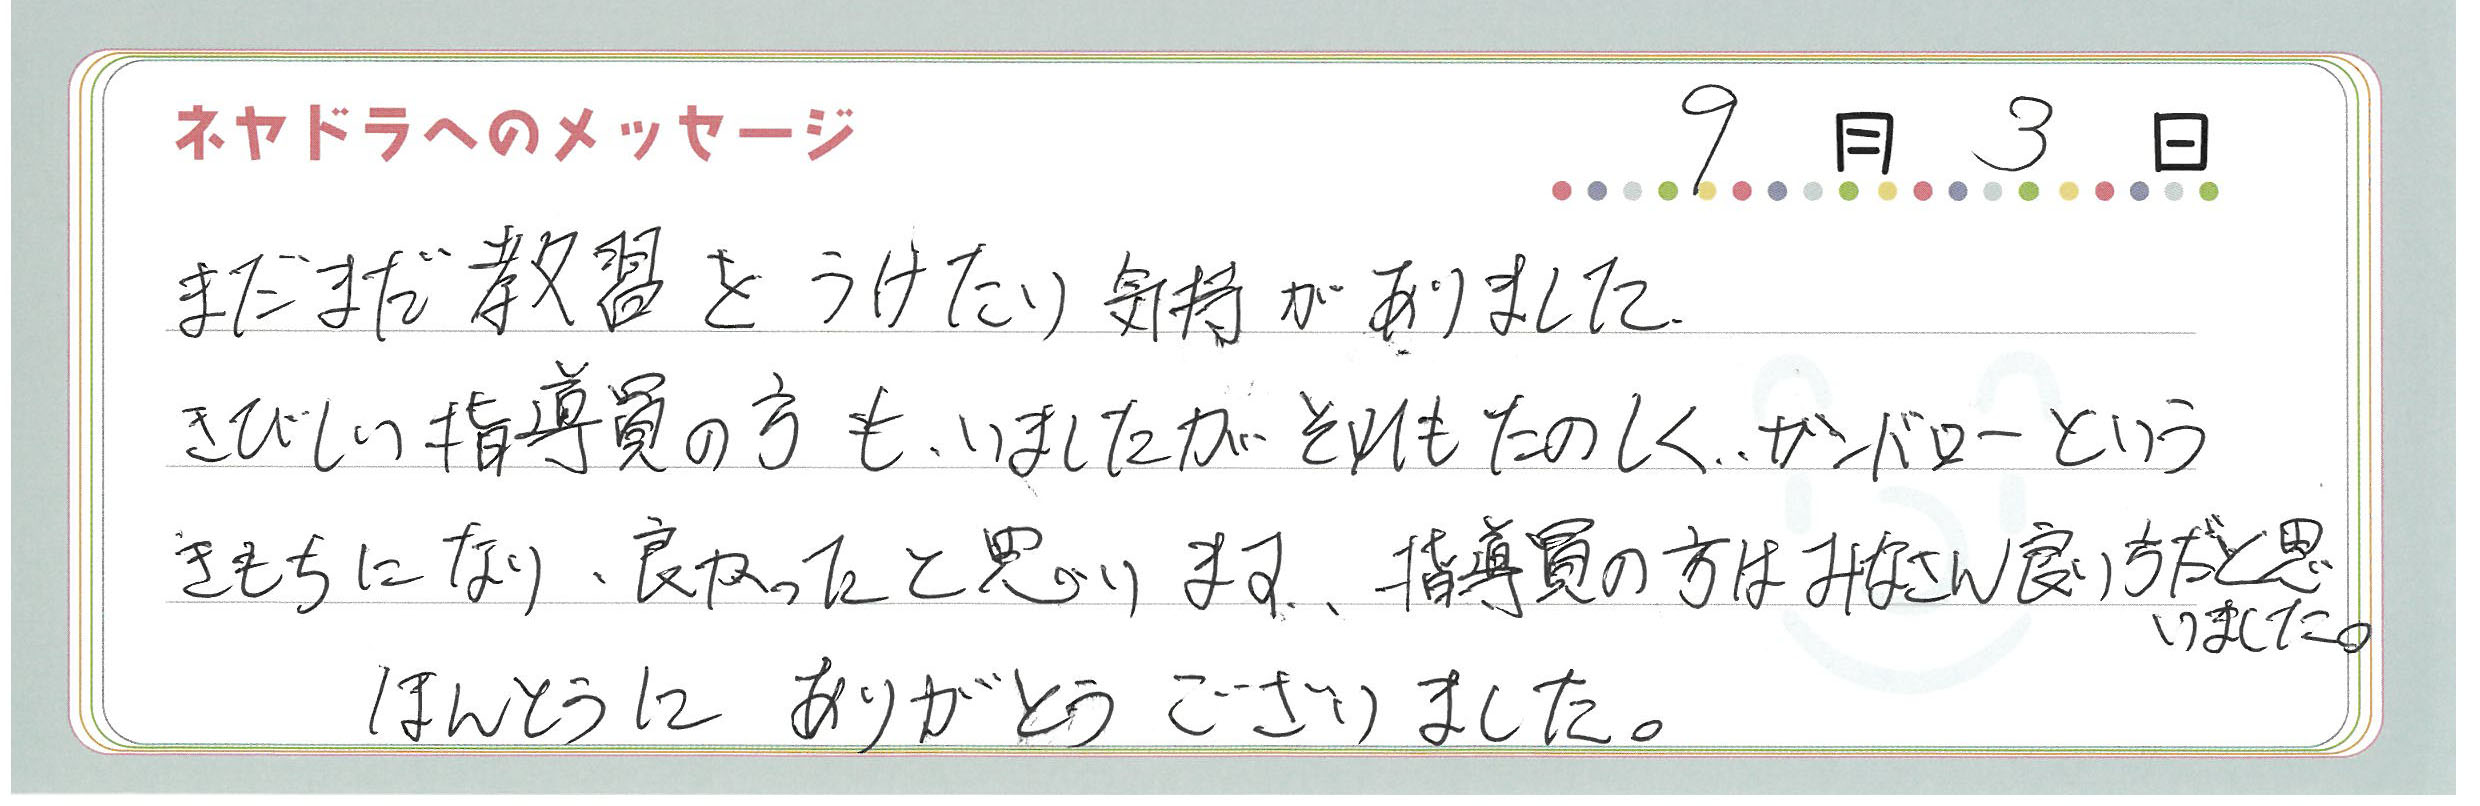 ネヤドラへのメッセージ
9月3日
まだまだ教習をうけたい気持がありました.
きびしい指導員の方も、いましたがそれもたのしく、、ガンバローという
きもちになり、良かったと思います、、指導員の方はみなさん良い方だと思
いました。
ほんとうに ありがとうございました。